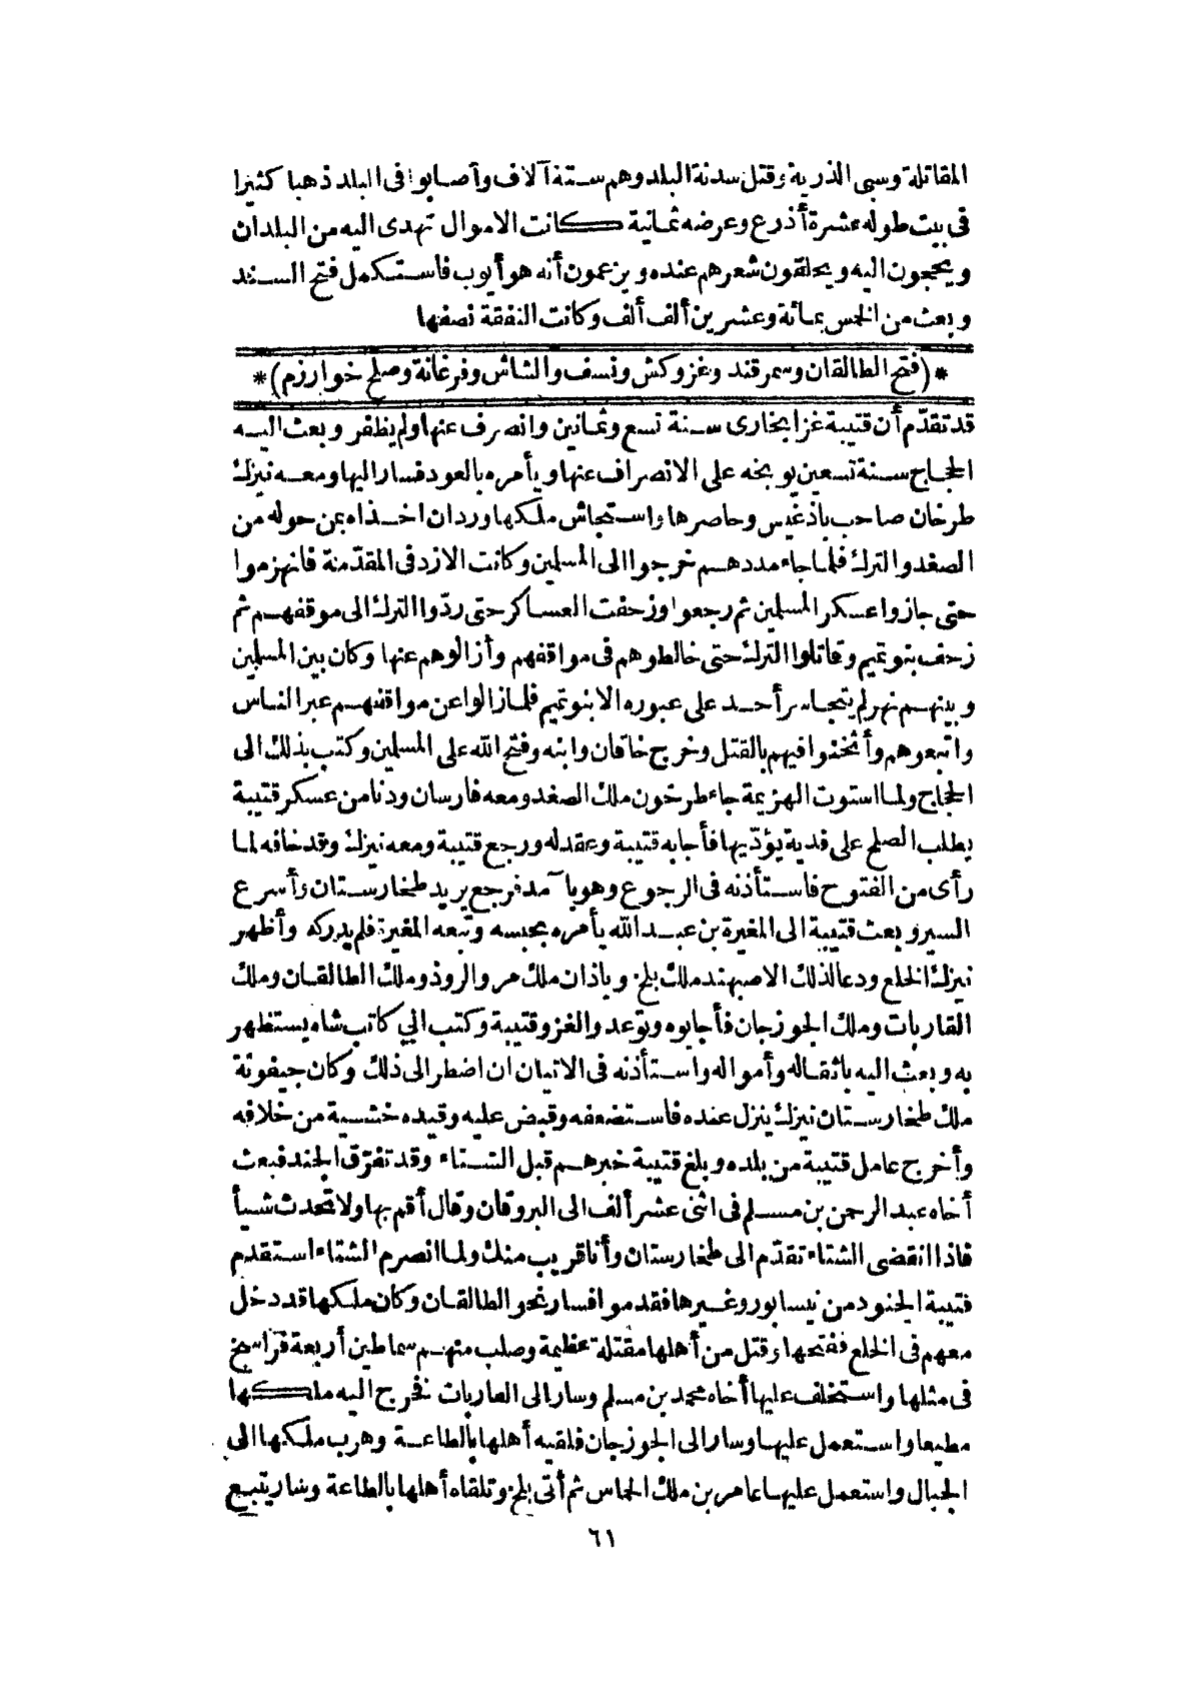 المقاتلة وسبى الذرية وقتل سدنة البلد وهم ستة آلاف وأصابوا فى البلد ذهبا كثيرا
فى بيت طوله عشرة أذرع وعرضه ثمانية كانت الاموال تهدى اليه من البلدان
ويحجون اليه ويحلقون شعرهم عنده ويزعمون أنه هو أيوب فاستكمل فتح السند
وبعث من الخمس بمائة وعشرين ألف ألف وكانت النفقة نصفها
*(فتح الطالقان وسمرقند وغزو كش ونسف والشاش وفرغانة وصلح خوارزم)*
قد تقدّم أن قتيبة غزا بخارى سنة تسع وثمانين وانصرف عنها ولم يظفر وبعث اليه
الحجاج سنة تسعين يوبخه على الانصراف عنها ويأمره بالعود فسار اليها ومعه نيزك
طرخان صاحب باذغيس وحاصرها واستجاش ملكها وردان اخذاه بمن حوله من
الصغد والترك فلما جاء مددهم خرجوا الى المسلمين وكانت الازد فى المقدّمة فانهزموا
حتى جازوا عسكر المسلمين ثم رجعوا وزحفت العساكر حتى ردّوا الترك الى موقفهم ثم
زحف بنو تميم وقاتلوا الترك حتى خالطوهم فى مواقفهم وأزالوهم عنها وكان بين المسلمين
وبينهم نهر لم يتجاسر أحد على عبوره الا بنو تميم فلما زالوا عن مواقفهم عبر الناس
واتبعوهم وأثخنوا فيهم بالقتل وخرج خاقان وابنه وفتح الله على المسلمين وكتب بذلك الى
الحجاج ولما استوت الهزيمة جاء طرخون ملك الصغد ومعه فارسان ودنا من عسكر قتيبة
يطلب الصلح على فدية يؤدّيها فأجابه قتيبة وعقد له ورجع قتيبة ومعه نيزك وقد خافه لما
رأى من الفتوح فاستأذنه فى الرجوع وهو بآمد فرجع يريد طخارستان وأسرع
السير وبعث قتيبة الى المغيرة بن عبد الله يأمره بحبسه وتبعه المغيرة فلم يدركه وأظهر
نيزك الخلع ودعا لذلك الاصبهند ملك بلخ وباذان ملك مر والروذ وملك الطالقان وملك
القاريات وملك الجوزجان فأجابوه وتوعدوا لغزو قتيبة وكتب الي كاتب شاه يستظهر
به وبعث اليه باثقاله وأمواله واستأذنه فى الاتيان ان اضطر الى ذلك وكان جيفونة
ملك طخارستان نيزك ينزل عنده فاستضعفه وقبض عليه وقيده خشية من خلافه
وأخرج عامل قتيبة من بلده وبلغ قتيبة خبرهم قبل الشتاء وقد تفرّق الجند فبعث
أخاه عبد الرحمن بن مسلم فى اثنى عشر ألف الى البروقان وقال أقم بها ولا تحدث شيأ
فاذا انقضى الشتاء تقدّم الى طخارستان وأنا قريب منك ولما انصرم الشتاء استقدم
قتيبة الجنود من نيسابور وغيرها فقدموا فسار نحو الطالقان وكان ملكها قد دخل
معهم فى الخلع ففتحها وقتل من أهلها مقتلة عظيمة وصلب منهم سماطين أربعة فراسخ
فى مثلها واستخلف عليها أخاه محمد بن مسلم وسار الى الغاريات فخرج اليه ملكها
مطيعا واستعمل عليها وسار الى الجوزجان فلقيه أهلها بالطاعة وهرب ملكها الى
الجبال واستعمل عليها عامر بن ملك الحماس ثم أتى بلخ وتلقاه أهلها بالطاعة وسار يتبع
٦١